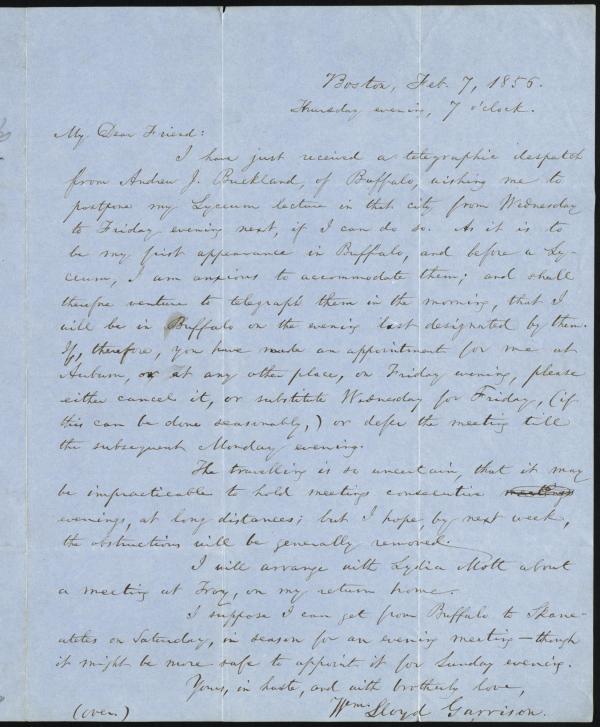 Boston, Feb. 7, 1856.
Thursday evening, 7 o'clock.
My Dear Friend:
I have just received a telegraphic despatch
from Andrew J. Buckland, of Buffalo, wishing me to
postpone my Lyceum lecture in that city from Wednesday
to Friday evening next, if I can do so. As it is to
be my first appearance in Buffalo, and before a Ly-
ceum, I am anxious to accommodate them; and shall
therefore venture to telegraph them in the morning, that I
will be in Buffalo on the evening last designated by them.
If, therefore, you have made an appointment for me at
Auburn, or at any other place, on Friday evening, please
either cancel it, or substitute Wednesday for Friday, (if
this can be done seasonably,) or defer the meeting till
the subsequent Monday evening.
The travelling is so uncertain, that it may
be impracticable to hold meetings consecutive
evenings, at long distances; but I hope, by next week,
the obstructions will be generally removed.
I will arrange with Lydia Mott about
a meeting at Troy, on my return home.
I suppose I can get from Buffalo to Skane-
ateles on Saturday, in season for an evening meeting—though
it might be more safe to appoint it for Sunday evening.
Yours, in haste, and with brotherly love,
(over.) Wm. Lloyd Garrison.